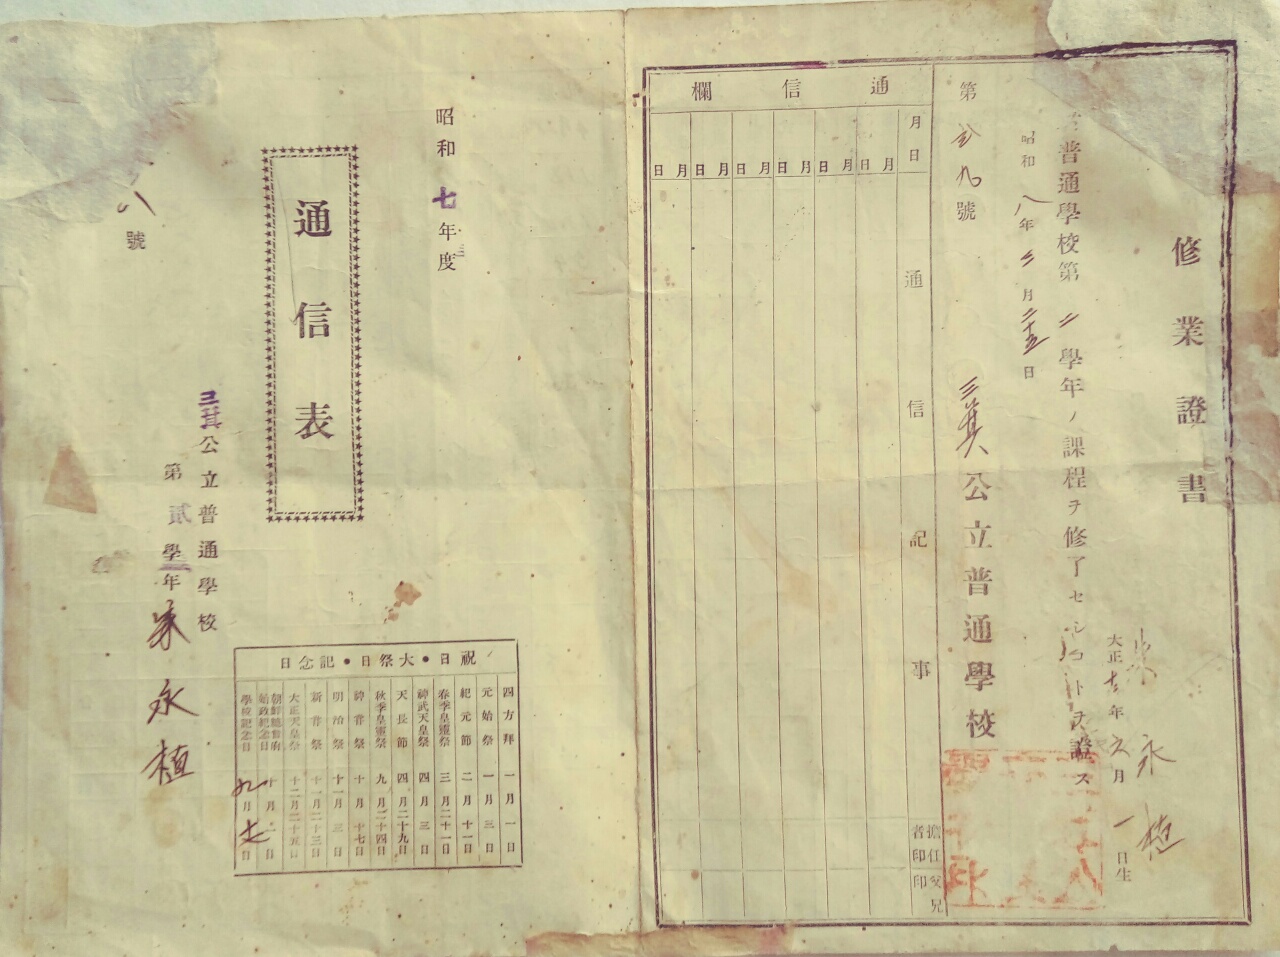 修業證書
朱永植
大正十三年六月一日生
普通學校第二學年ノ課程ヲ修了セシコトヲ證ス
昭和八年三月二十五日
三箕公立普通學校
第 九號
通信欄
月日 通信記事 擔任者印 父兄印
月日 月日 月日 月日 月日 月日
昭和七年度
通信表
三箕公立普通學校
第貳學年
朱永植
八號
祝日・大祭日・記念日
四方拜 一月一日
元始祭 一月三日
紀元節 二月十一日
春季皇靈祭 三月二十一日
神武天皇祭 四月三日
天長節 四月二十九日
秋季皇靈祭 九月二十四日
神嘗祭 十月十七日
明治節 十一月三日
新嘗祭 十一月二十三日
大正天皇祭 十二月二十五日
朝鮮總督府始政紀念日 十月一日
學校記念日 九月 日